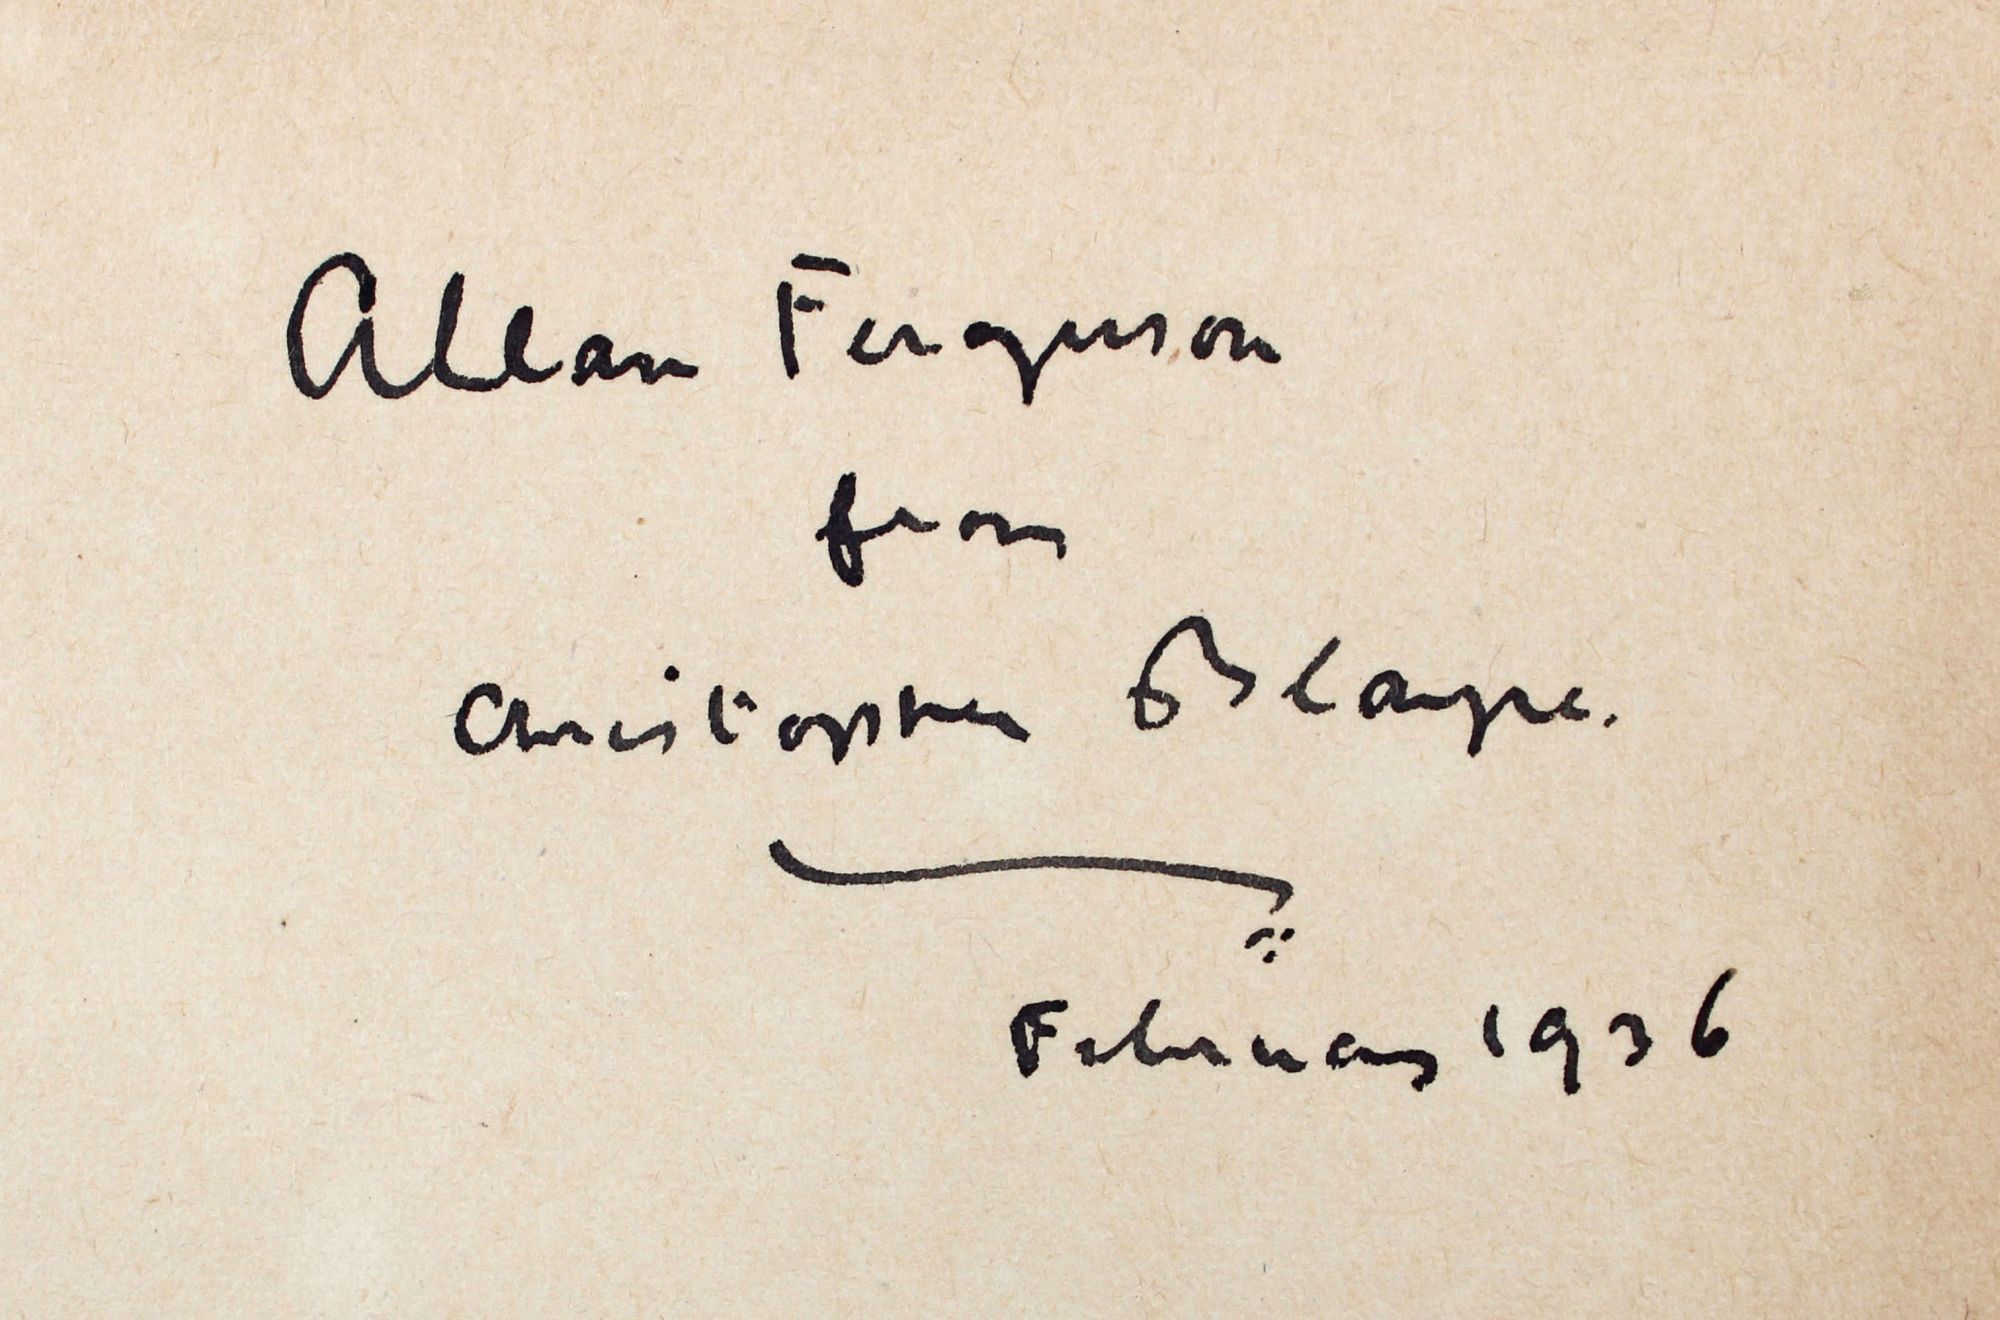 Allan Ferguson
from
Christopher Blayre.
February 1936